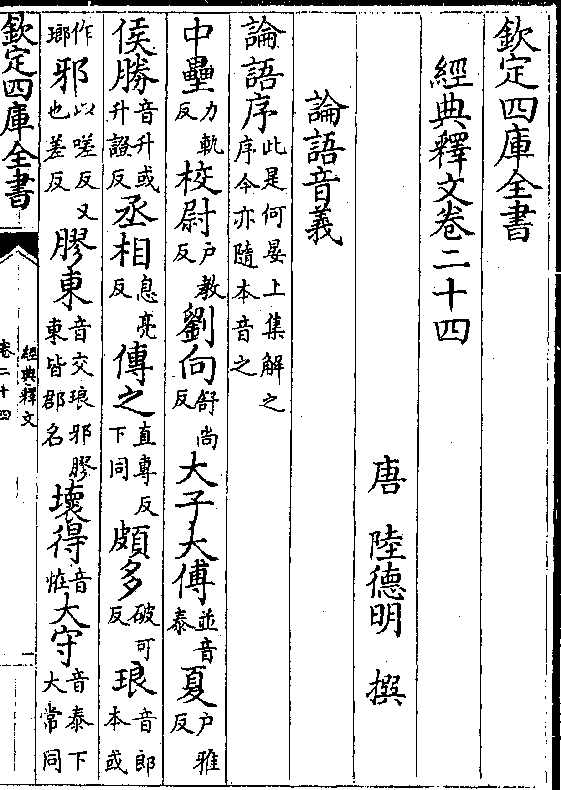 欽定四庫全書
經典釋文卷二十四
唐 陸德明 撰
論語音義
論語序此是何晏上集解之序今亦隨本音之
中壘力軌反校尉戶教反劉向舒尚反大子大傅並音泰夏戶雅反
侯勝音升或升證反丞相息亮反傳之直專反下同頗多破可反琅音郎本或
作瑯邪以嗟反又也差反膠東音交琅邪膠東皆郡名壞得音怪大守音泰下大常同
欽定四庫全書
經典釋文
卷二十四
一